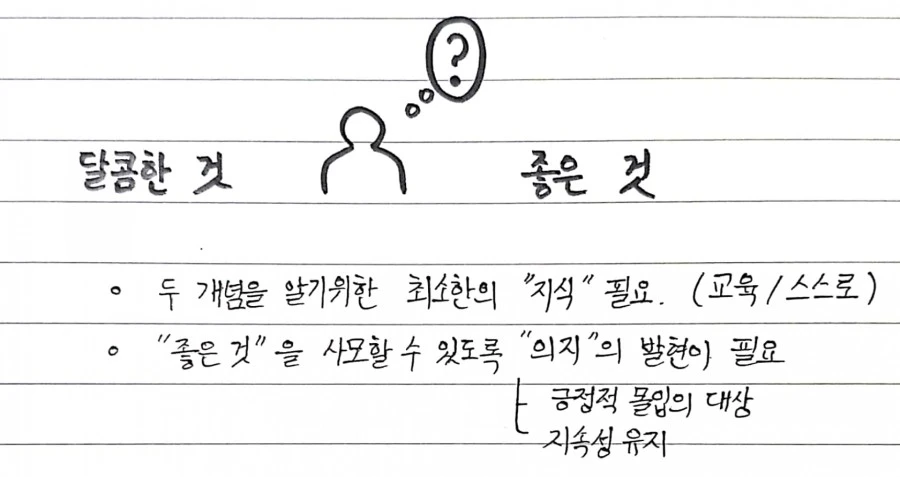 ?
달콤한 것 좋은 것
◦ 두 개념을 알기위한 최소한의 "지식" 필요. (교육/스스로)
◦ "좋은 것"을 사모할 수 있도록 "의지"의 발현이 필요
긍정적 몰입의 대상
지속성 유지